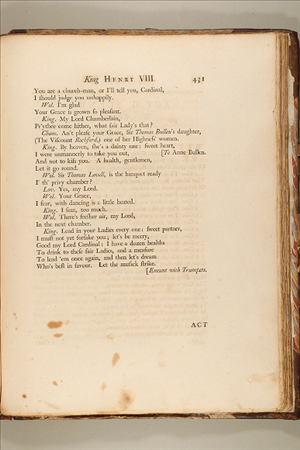 King HENRY VIII. 431
You are a church-man, or I'll tell you, Cardinal,
I should judge you unhappily.
Wol. I'm glad
Your Grace is grown so pleasant.
King. My Lord Chamberlain,
Pr'ythee come hither, what fair Lady's that?
Cham. An't please your Grace, Sir Thomas Bullen's daughter,
(The Viscount Rochford,) one of her Highness' women.
King. By heaven, she's a dainty one: sweet heart,
I were unmannerly to take you out, [To Anne Bullen.
And not to kiss you. A health, gentlemen,
Let it go round.
Wol. Sir Thomas Lovell, is the banquet ready
I' th' privy chamber?
Lov. Yes, my Lord.
Wol. Your Grace,
I fear, with dancing is a little heated.
King. I fear, too much.
Wol. There's fresher air, my Lord,
In the next chamber.
King. Lead in your Ladies every one: sweet partner,
I must not yet forsake you; let's be merry,
Good my Lord Cardinal: I have a dozen healths
To drink to these fair Ladies, and a measure
To lead 'em once again, and then let's dream
Who's best in favour. Let the musick strike.
[Exeunt with Trumpets.
ACT